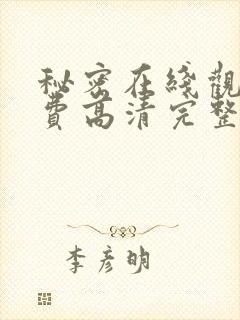 秘密在綫觀
費高清完整
李彦明